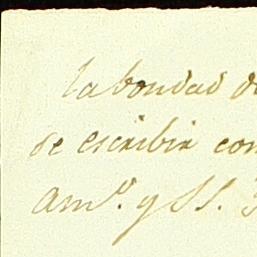 la bondad de
de escribir con
am.º y SS.